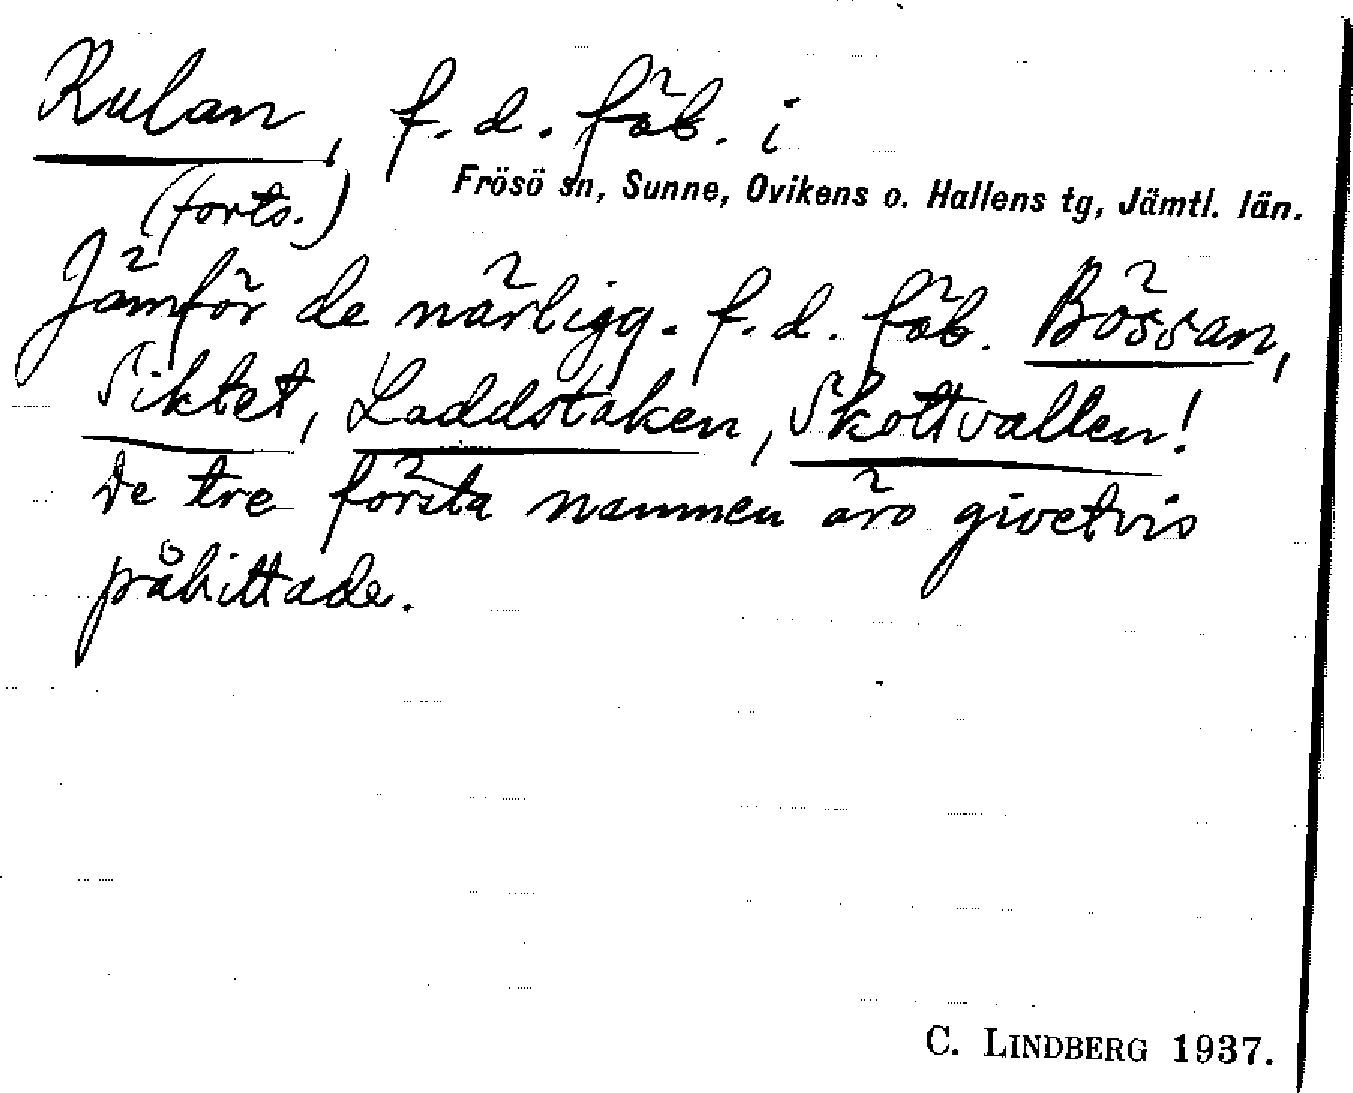 Kulan, f. d. fäb. i
Frösö sn, Sunne, Ovikens o. Hallens tg, Jämtl. län.
(forts.)
Jämför de närligg. f. d. fäb. Bössan,
Siktet, Laddstaken, Skottvallen!
De tre första namnen äro givetvis
påhittade.
C. LINDBERG 1937.